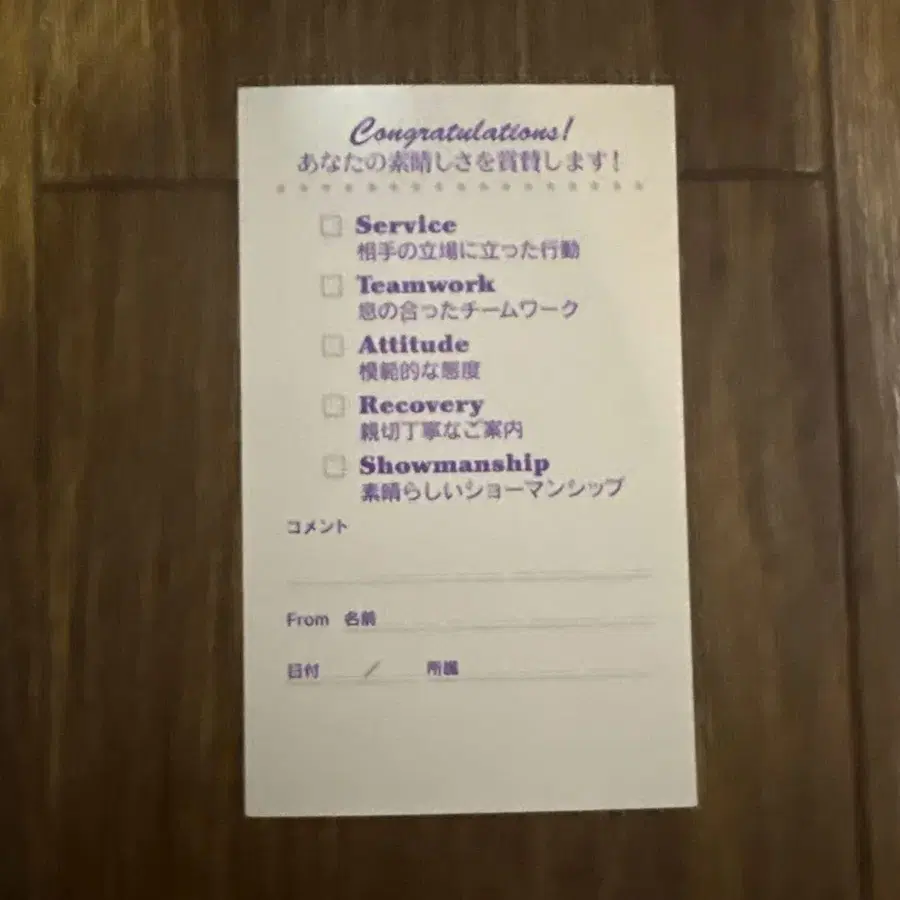 Congratulations!
あなたの素晴しさを賞賛します!
Service
相手の立場に立った行動
Teamwork
息の合ったチームワーク
Attitude
模範的な態度
Recovery
親切丁寧なご案内
Showmanship
素晴らしいショーマンシップ
コメント
From 名前
日付 / 所属